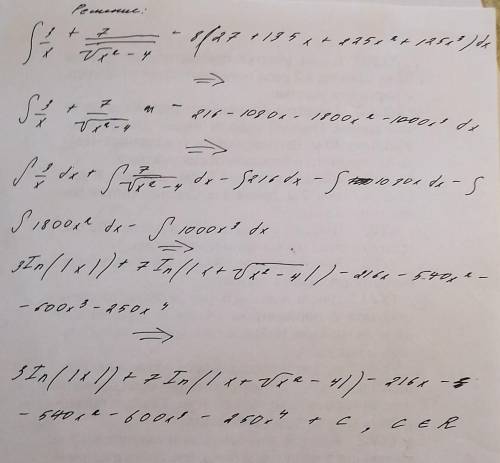 Решение:
∫ 3/x + 7/√(x² - 4) - 8(27 + 135x + 225x² + 125x³) dx
⇒
∫ 3/x + 7/√(x² - 4) - 216 - 1080x - 1800x² - 1000x³ dx
⇒
∫ 3/x dx + ∫ 7/√(x² - 4) dx - ∫ 216 dx - ∫ 1080x dx - ∫
∫ 1800x² dx - ∫ 1000x³ dx
⇒
3 In(|x|) + 7 In(|x + √(x² - 4)|) - 216x - 540x² -
- 600x³ - 250x⁴
⇒
3 In(|x|) + 7 In(|x + √x² - 4|) - 216x -
- 540x² - 600x³ - 250x⁴ + C, C ∈ R